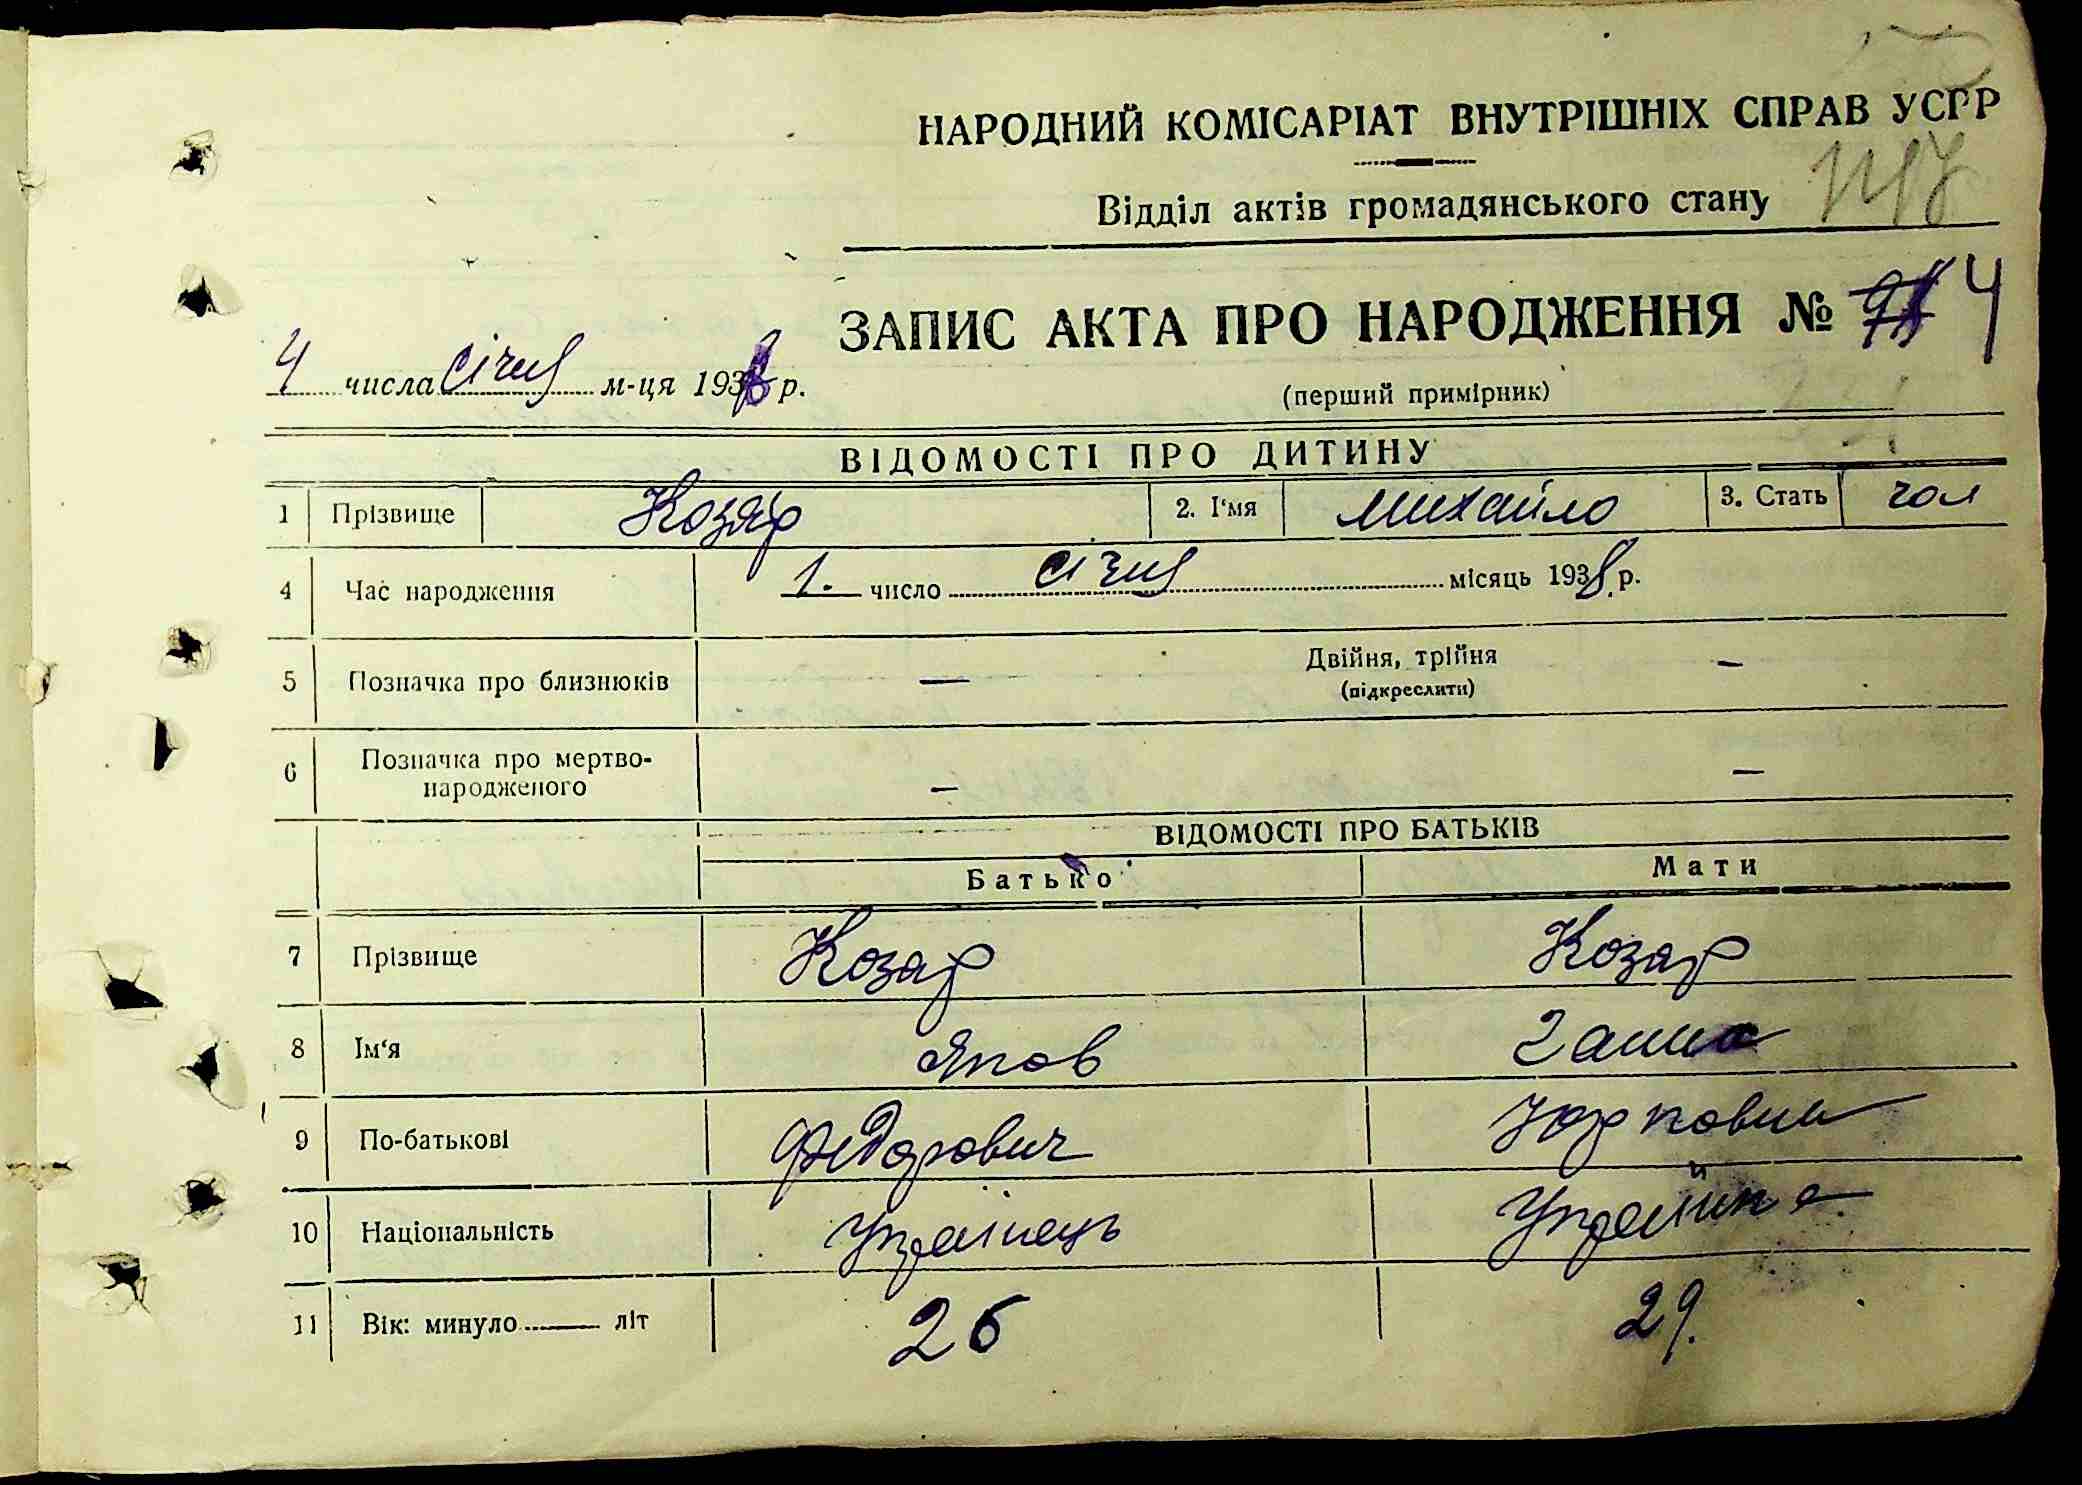 НАРОДНИЙ КОМІСАРІАТ ВНУТРІШНІХ СПРАВ УСРР
Відділ актів громадянського стану
ЗАПИС АКТА ПРО НАРОДЖЕННЯ № 4
4 числа січня м-ця 1938 р.
(перший примірник)
ВІДОМОСТІ ПРО ДИТИНУ
1 Прізвище Козяр 2. І'мя Михайло 3. Стать чол
4 Час народження 1. число січня місяць 1938 р.
5 Позначка про близнюків — Двійня, трійня —
(підкреслити)
6 Позначка про мертво-
народженого — —
ВІДОМОСТІ ПРО БАТЬКІВ
Батько Мати
7 Прізвище Козар Козар
8 Ім'я Яков Ганна
9 По-батькові Федорович Юрковна
10 Національність Українець Українка
11 Вік: минуло — літ 26 29.